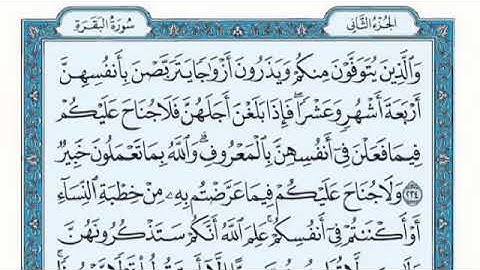 الجزء الثاني
سورة البقرة
وَالَّذِينَ يُتَوَفَّوْنَ مِنكُمْ وَيَذَرُونَ أَزْوَاجًا يَتَرَبَّصْنَ بِأَنفُسِهِنَّ
أَرْبَعَةَ أَشْهُرٍ وَعَشْرًا ۖ فَإِذَا بَلَغْنَ أَجَلَهُنَّ فَلَا جُنَاحَ عَلَيْكُمْ
فِيمَا فَعَلْنَ فِي أَنفُسِهِنَّ بِالْمَعْرُوفِ ۗ وَاللَّهُ بِمَا تَعْمَلُونَ خَبِيرٌ
٢٣٤ وَلَا جُنَاحَ عَلَيْكُمْ فِيمَا عَرَّضْتُم بِهِ مِنْ خِطْبَةِ النِّسَاءِ
أَوْ أَكْنَنتُمْ فِي أَنفُسِكُمْ ۚ عَلِمَ اللَّهُ أَنَّكُمْ سَتَذْكُرُونَهُنَّ